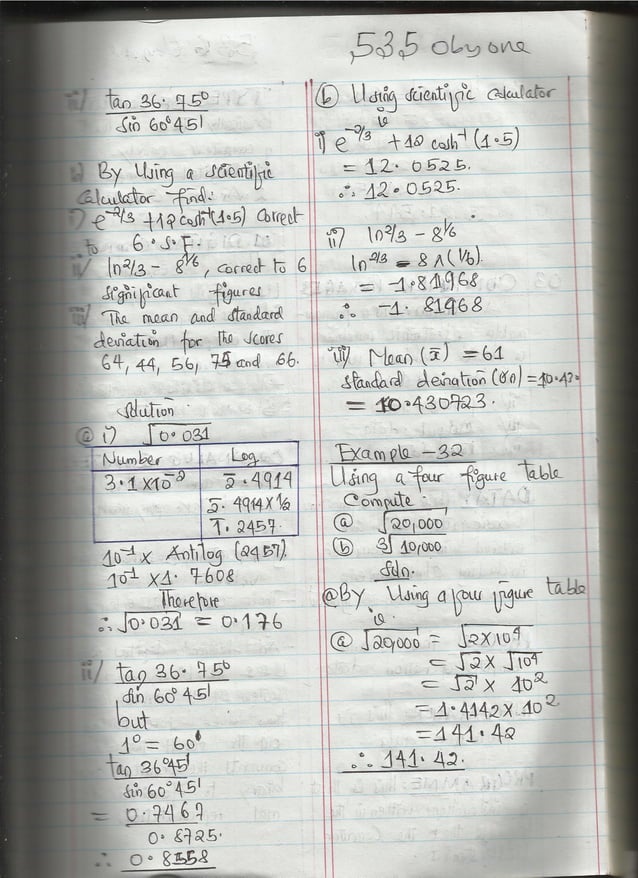 535 Obyone
ii/ tan 36.75°
sin 60°45'
b) By Using a scientific
Calculator find:
i) e^-2/3 + 12 cosh^-1 (1.5) Correct
to 6.S.F.
ii/ ln 2/3 - 8^1/6, correct to 6
significant figures
iii/ The mean and standard
deviation for the scores
64, 44, 56, 75 and 66.
Solution
(a) i) √0.031
Number Log
3.1 x 10^-2 2̅.4914
2̅.4914 x 1/2
1̅.2457
10^-1 x Antilog (2457)
10^-1 x 1.7608
Therefore
∴ √0.031 = 0.176
ii/ tan 36.75°
sin 60°45'
but
1° = 60'
tan 36°45'
sin 60°45'
= 0.7467
0.8725.
∴ 0.8558
(b) Using scientific calculator
ie
i) e^-2/3 + 12 cosh^-1 (1.5)
= 12.0525.
∴ 12.0525.
ii) ln 2/3 - 8^1/6
ln 2/3 - 8 ∧ (1/6).
= -1.81968
∴ -1.81968
iii) Mean (x̅) = 61
standard deviation (σn) = 10.430
= 10.430723.
Example - 32
Using a four figure table
Compute:
(a) √20,000
(b) ∛10,000
Soln.
(a) By Using a four figure table
ie
(a) √20,000 = √2x10^4
= √2 x √10^4
= √2 x 10^2
= 1.4142 x 10^2
= 141.42
∴ 141.42.